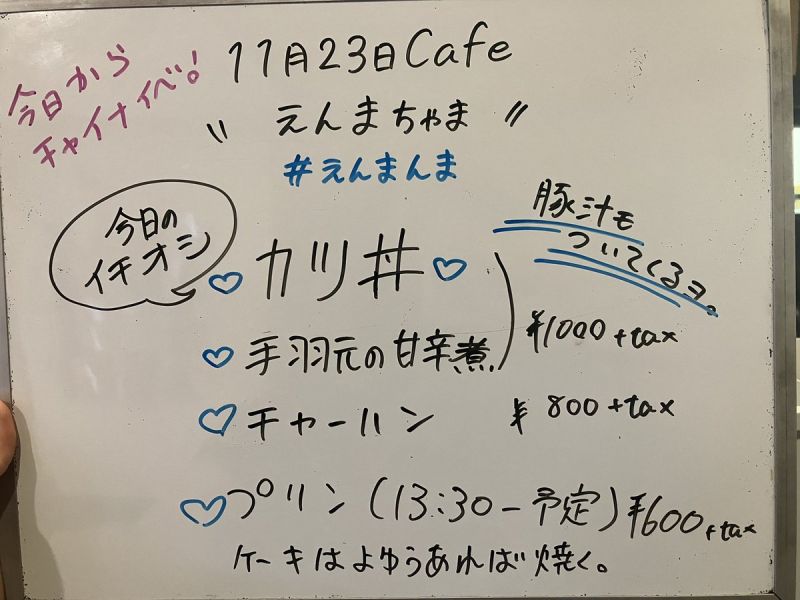 今日から
チャイナイベ!
11月23日Cafe
〝えんまちゃま〟
#えんまんま
今日の
イチオシ
豚汁も
ついてくるヨ。
♡カツ丼♡
♡手羽元の甘辛煮 ¥1000+tax
♡チャーハン ¥800+tax
♡プリン(13:30-予定)¥600+tax
ケーキはよゆうあれば焼く。